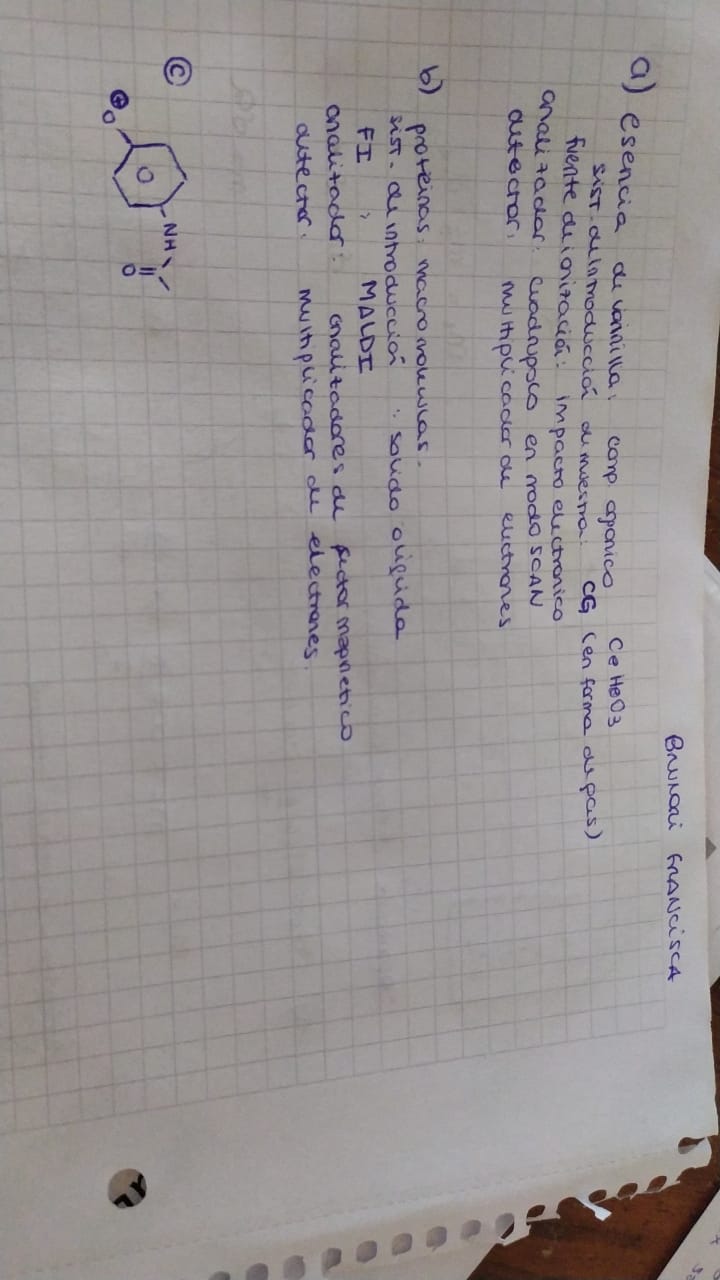 BRUNORI FRANCISCA
a) esencia de vainilla: comp. organico C8H8O3
sist. de introducción de muestra: CG (en forma de gas)
fuente de ionización: impacto electronico
analizador: cuadrupolo en modo SCAN
detector: multiplicador de electrones
b) proteinas: macromoleculas.
sist. de introducción: solido o liquida
FI: MALDI
analizador: analizadores de sector magnetico
detector: multiplicador de electrones.
C
⊕ O NH
O